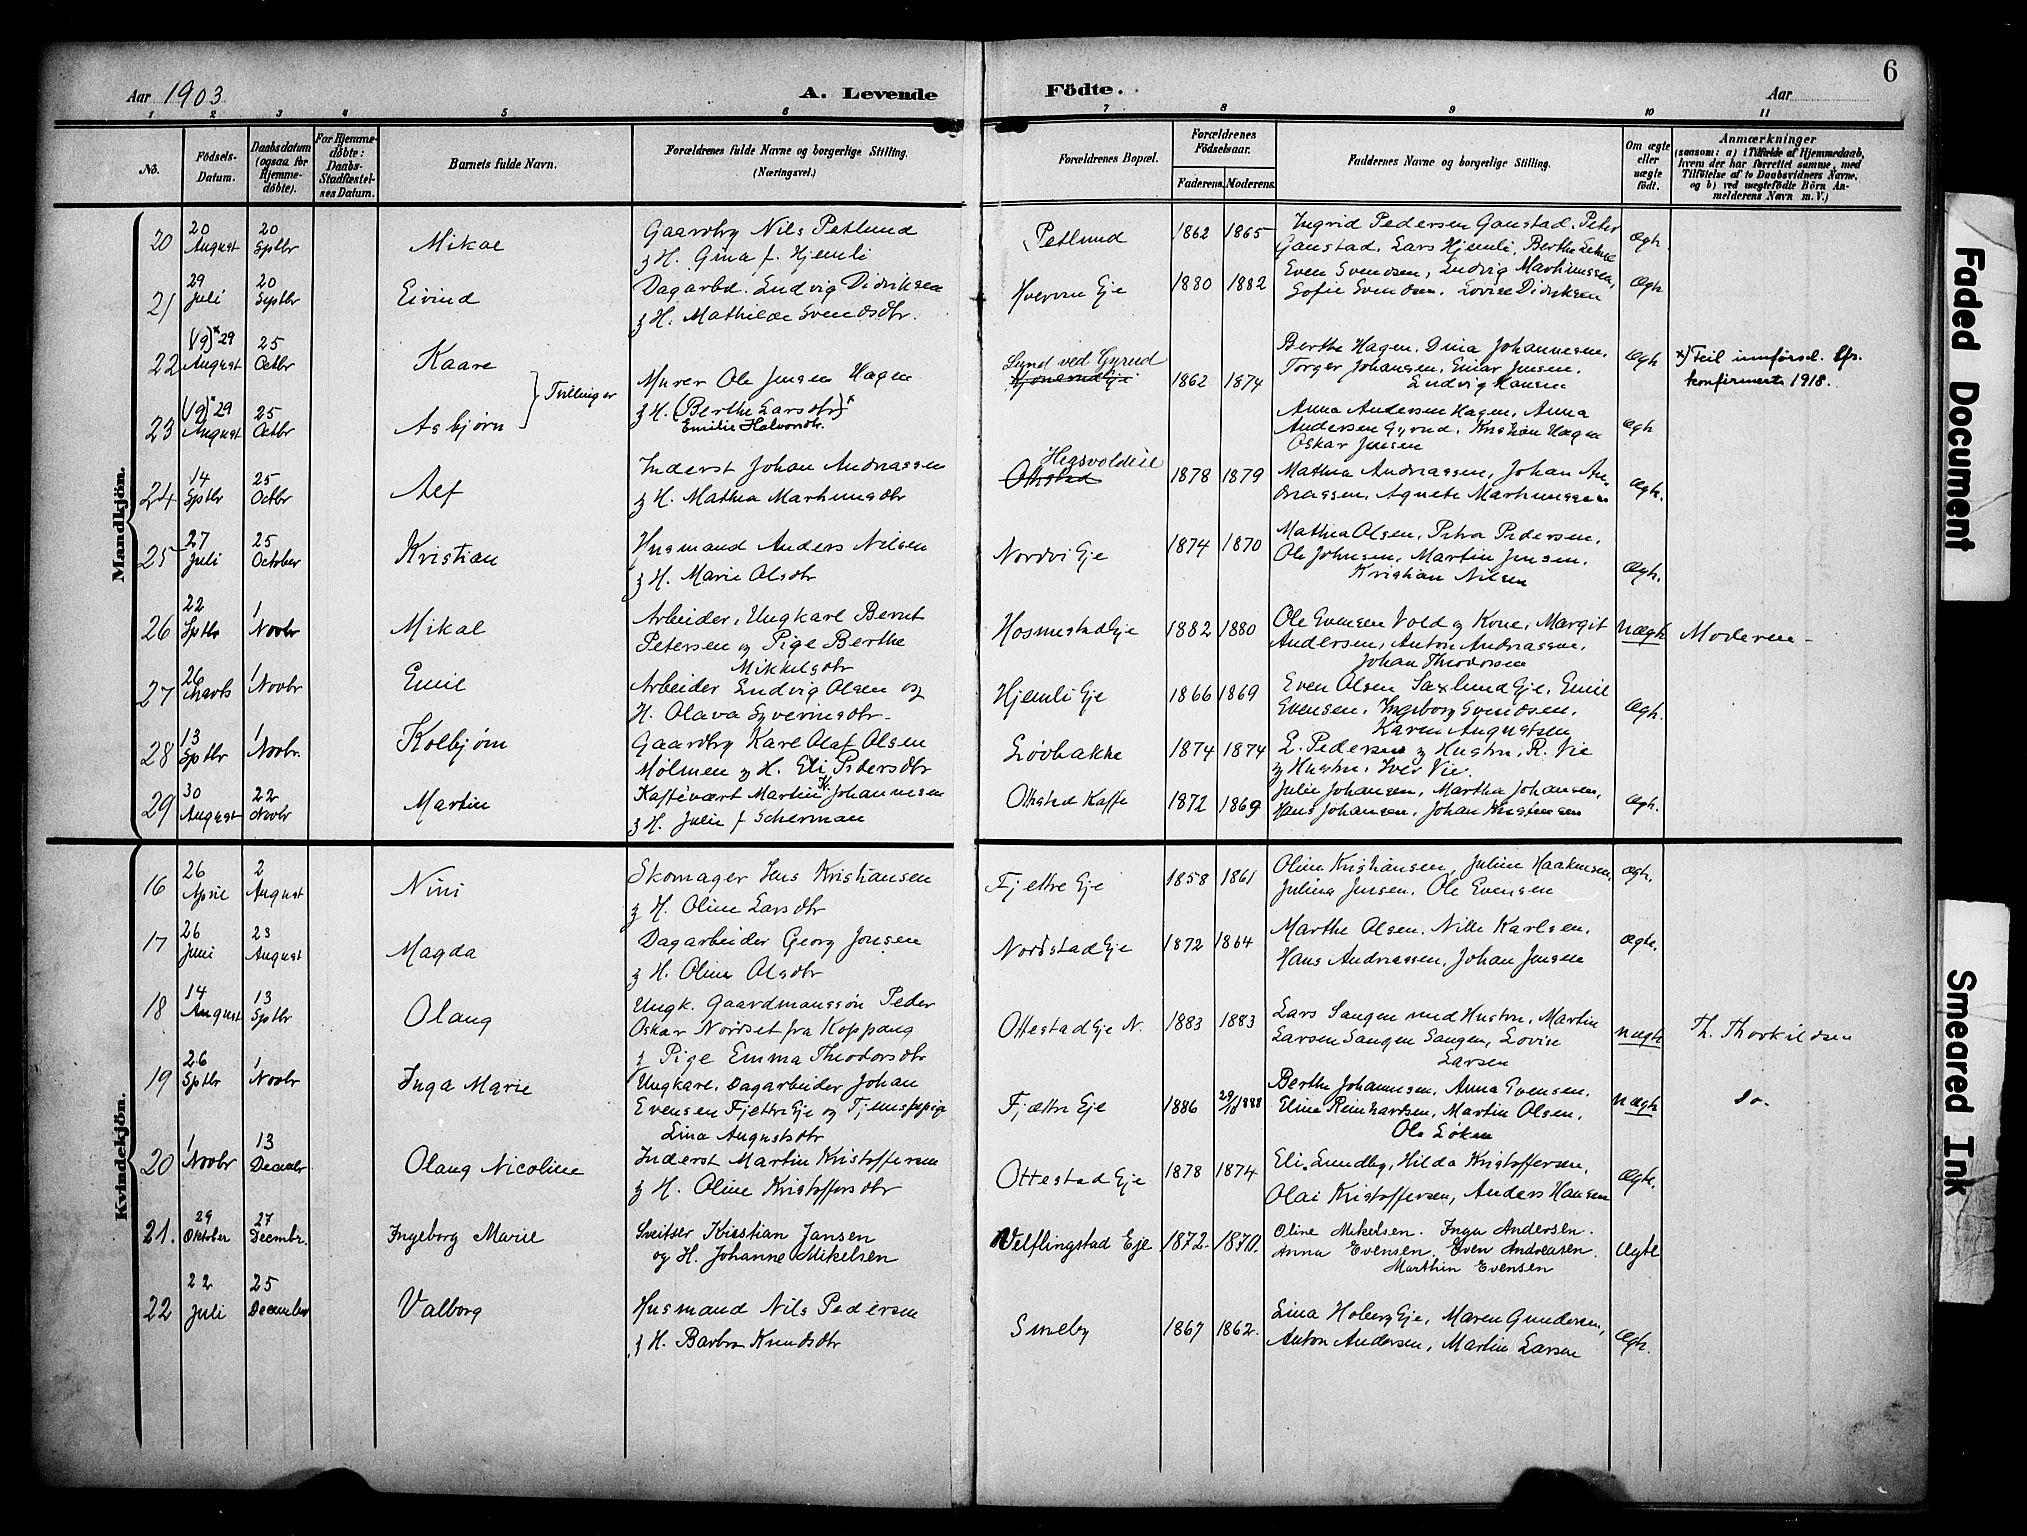 6
Aar 1903
A. Levende Födte.
Aar
1 2 3 4 5 6 7 8 9 10 11
No.
Födsels-Datum.
Daabsdatum (ogsaa for Hjemme-döbte).
For Hjemme-döbte: Daabs-Stadfæstel-ses Datum.
Barnets fulde Navn.
Forældrenes fulde Navne og borgerlige Stilling. (Næringsvei.)
Forældrenes Bopæl.
Forældrenes Födselsaar.
Faderens. Moderens.
Faddernes Navne og borgerlige Stilling.
Om ægte eller uægte födt.
Anmærkninger
(saasom: a) i Tilfælde af Hjemmedaab, hvem der har forrettet samme, med Tilföielse af to Daabsvidners Navne, og b) ved uægtefödte Börn An-melderens Navn m. V.)
Mandkjön.
20 20 August 20 Septbr Mikal Gaardbr Nils Petlund
& H. Gina f. Hjemli Petlund 1862 1865 Ingrid Pedersen Gaustad. Peter
Gaustad. Lars Hjemli, Berthe Ægt.
21 29 Juli 20 Septbr Eivind Dagarbd. Ludvig Didriksen
& H. Mathilde Svendsdtr. Eje 1880 1882 Even Svendsen, Ludvig Marthinssen,
Sofie Svendsen. Lovise Didriksen Ægt
22 (19)* 29 August 25 Octbr Kaare
Tvillinger
Murer Ole Jensen Hagen
& H. (Berthe Larsdtr)*
Emilie Halvorsdtr.
Lund ved Gyrud
1862 1874 Berthe Hagen. Dina Johannesen.
Torger Johansen, Einar Jensen,
Ludvig Hansen Ægt *) Feil innførsel. Efr.
konfirmerte 1918.
23 (19)* 29 August 25 Octbr Asbjørn
Anna Andersen Hagen, Anna
Andersen Gyrud, Kristian Hagen
Oskar Jensen Ægt
24 14 Sptbr 25 Octbr Alf Inderst Johan Andreassen
& H. Mathea Marthinusdtr
Ottestad 1878 1879 Mathea Andreassen, Johan An-
dreassen, Agnete Marthinussen Ægt.
25 27 Juli 25 October Kristian Husmand Anders Nilsen
& H. Marie Olsdtr Nordvi Eje 1874 1870 Mathea Olsen. Petra Pedersen,
Ole Johnsen, Martin Jensen.
Kristian Nilsen Ægt.
26 22 Sptbr 1 Novbr Mikal Arbeider, Ungkarl Bernt
Petersen og Pige Berthe
Mikkelsdtr Hosmestad Eje 1882 1880 Ole Evensen Vold og Kone, Margit
Andersen, Anton Andreassen,
Johan Theodorsen Uægt Moderen -
27 26 Marts 1 Novbr Emil Arbeider Ludvig Olsen og
H. Olava Syverinsdtr- Hjemli Eje 1866 1869 Even Olsen Saxlund Eje, Emil
Evensen. Ingeborg Svendsen.
Karen Augustsen Ægt.
28 13 Sptbr 1 Novbr. Kolbjørn Gaardbr Karl Olaf Olsen
Mølmen og H. Eli Pedersdtr Løvbakke 1874 1874 L. Pedersen & Hustru. R. Vie
& Hustru, Iver Vie.
29 30 August 22 Novbr Martin Kaffevært Martin K. Johannesen
& H. Julie f Scherman Ottestad Kaffe 1872 1869 Julie Johansen, Martha Johansen,
Hans Johansen, Johan Kristiansen Ægt.
Kvindekjön.
16 26 April 2 August Nini Skomager Jens Kristiansen
& H. Oline Larsdtr Fjettre Eje 1858 1861 Oline Kristiansen, Juline Haakensen,
Julina Jensen. Ole Evensen Ægt.
17 26 Juni 23 August Magda Dagarbeider Georg Jensen
& H. Oline Olsdtr Nordstad Eje 1872 1864 Marthe Olsen. Nille Karlsen.
Hans Andreassen, Johan Jensen Ægte.
18 14 August 13 Sptbr Olaug Ungk. Gaardmanssøn Peder
Oskar Nordset fra Koppang
& Pige Emma Theodorsdtr Ottestad Eje N. 1883 1883 Lars Sangen med Hustru, Martin
Larsen Sangen Sangen, Lovise
Larsen Uægt Th. Thorkildsen
19 26 Sptbr 1 Novbr Inga Marie Ungkarl. Dagarbeider Johan
Evensen Fjettre Eje og Tjenestepige
Lina Augustsdtr Fjettre Eje 1886 1888 Berthe Johannesen. Anna Evensen.
Eline Reinhardsen, Martin Olsen.
Ole Løken Uægt do-
20 1 Novbr 13 Decembr Olaug Nicoline Inderst Martin Kristoffersen
& H. Oline Kristoffersdtr Ottestad Eje 1878 1874 Eli Lundby, Hilda Kristoffersen,
Olai Kristoffersen, Anders Hansen Ægte.
21. 29 Oktober 27 Decembr. Ingeborg Marie Sveitser Kristian Jansen
og H. Johanne Mikelsen Velflingstad Eje 1872. 1870. Oline Mikelsen. Inga Andersen.
Anna Evensen. Even Andreasen.
Marthin Evensen Ægte
22 22 Juli 25 December Valborg Husmand Nils Pedersen
& H. Barbra Knudsdtr Smeby 1867 1862. Lina Hoberg Eje, Maren Gundersen,
Anton Andersen, Martin Larsen Ægt.
Faded Document
Smeared Ink